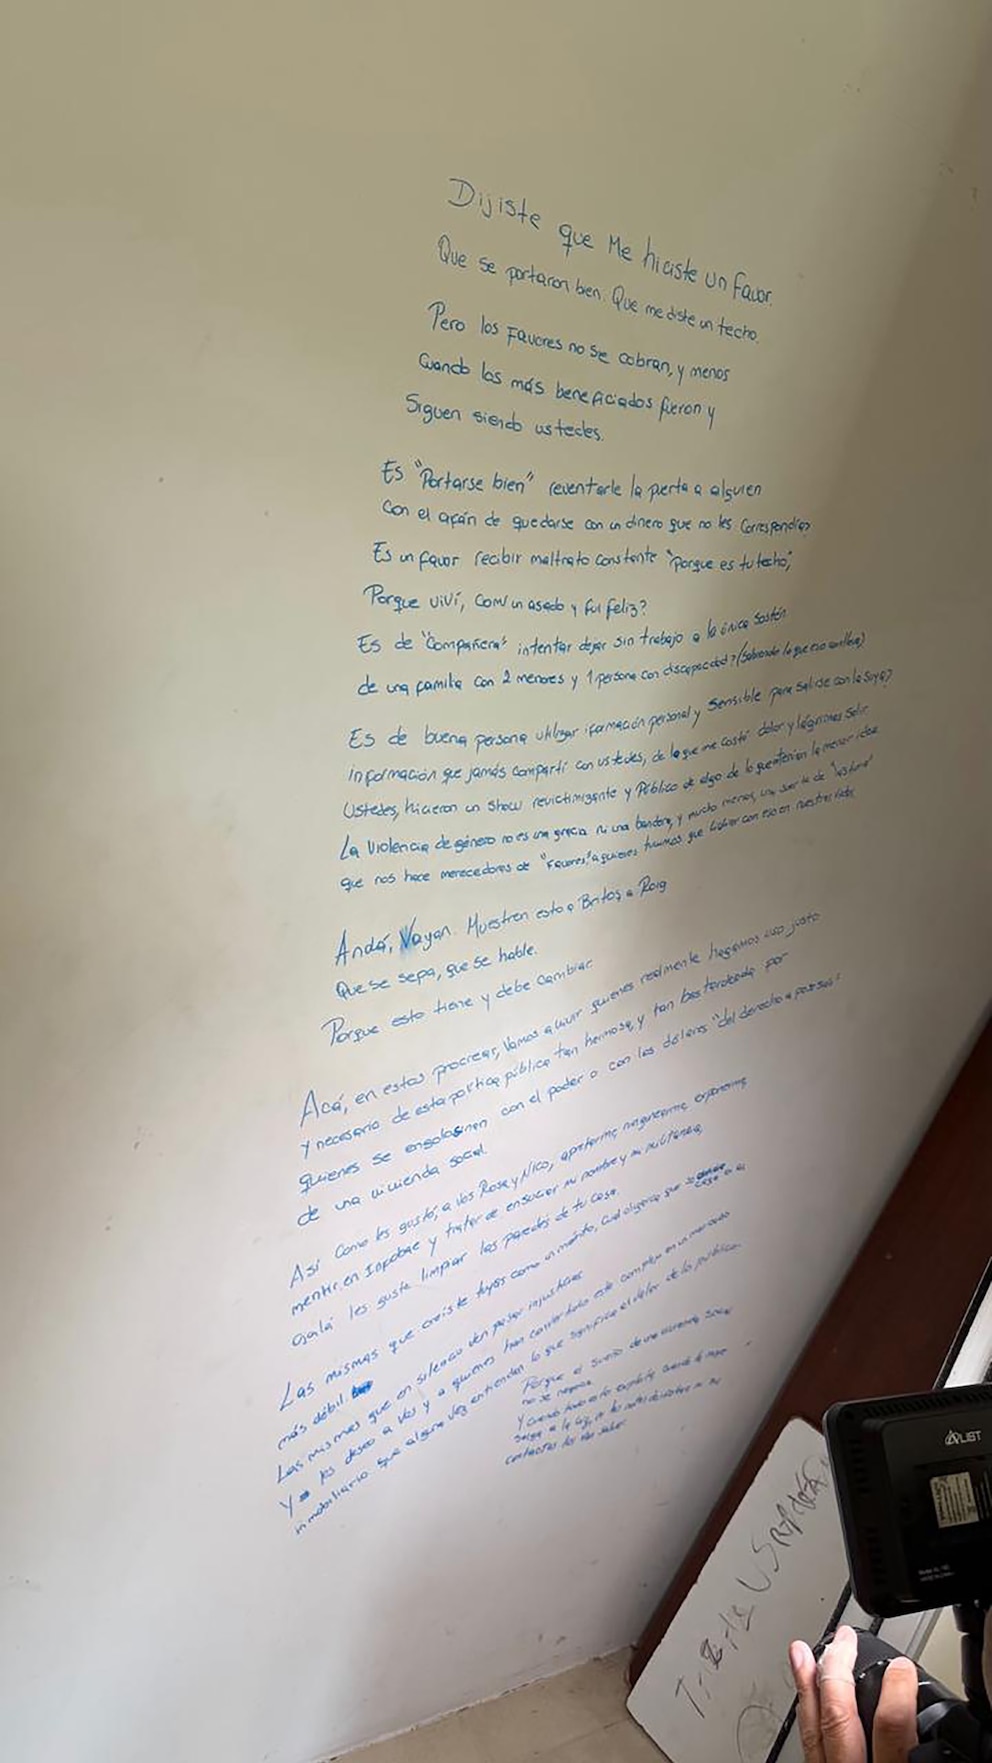 Dijiste que Me hiciste un favor.
Que se portaron bien. Que me diste un techo.
Pero los Favores no se cobran, y menos
Cuando los más beneficiados fueron y
Siguen siendo ustedes.
Es "Portarse bien" reventarle la puerta a alguien
con el afán de quedarse con un dinero que no les Correspondía?
Es un favor recibir maltrato constante "porque es tu techo",
Porque viví, comí un asado y fui feliz?
Es de "Compañera" intentar dejar sin trabajo a la única Sostén
de una familia con 2 menores y 1 persona con discapacidad? (Sabiendo lo que eso conlleva)
Es de buena persona utilizar información personal y Sensible para Salirse con la Suya?
información que jamás compartí con ustedes, de la que me costó dolor y lágrimas Salir
Ustedes, hicieron un show revictimizante y Público de algo de lo que tenían la menor idea
La Violencia de género no es una gracia ni una bandera, y mucho menos, una suerte de "lástima"
que nos hace merecedoras de "Favores" a quienes tuvimos que lidiar con eso en nuestras vidas
Andá, Vayan. Muestren esto a Britos, a Roig
Que se sepa, que se hable.
Porque esto tiene y debe Cambiar.
Acá, en estos procrear, Vamos a vivir quienes realmente hagamos uso justo
y necesario de esta política pública tan hermosa, y tan bastardeada por
quienes se engolosinan con el poder o con los dólares "del derecho a posesión"
de una vivienda social.
Así Como les gustó, a vos Rosa y Nico, apretarme,
mentir en Infobae y tratar de ensuciar mi nombre y mi militancia,
ojalá les guste limpiar las paredes de tu casa.
Las mismas que creíste tuyas como un mérito, cual oligarca que se
más débil.
Las mismas que en silencio ven pasar injusticias
Y les deseo a vos y a quienes han convertido este complejo en un mercado
inmobiliario que alguna vez entiendan lo que significa el valor de lo público.
Porque el sueño de una vivienda social
no se negocia
Y cuando todo esto explote, cuando la mugre
salga a la luz,
ALIST